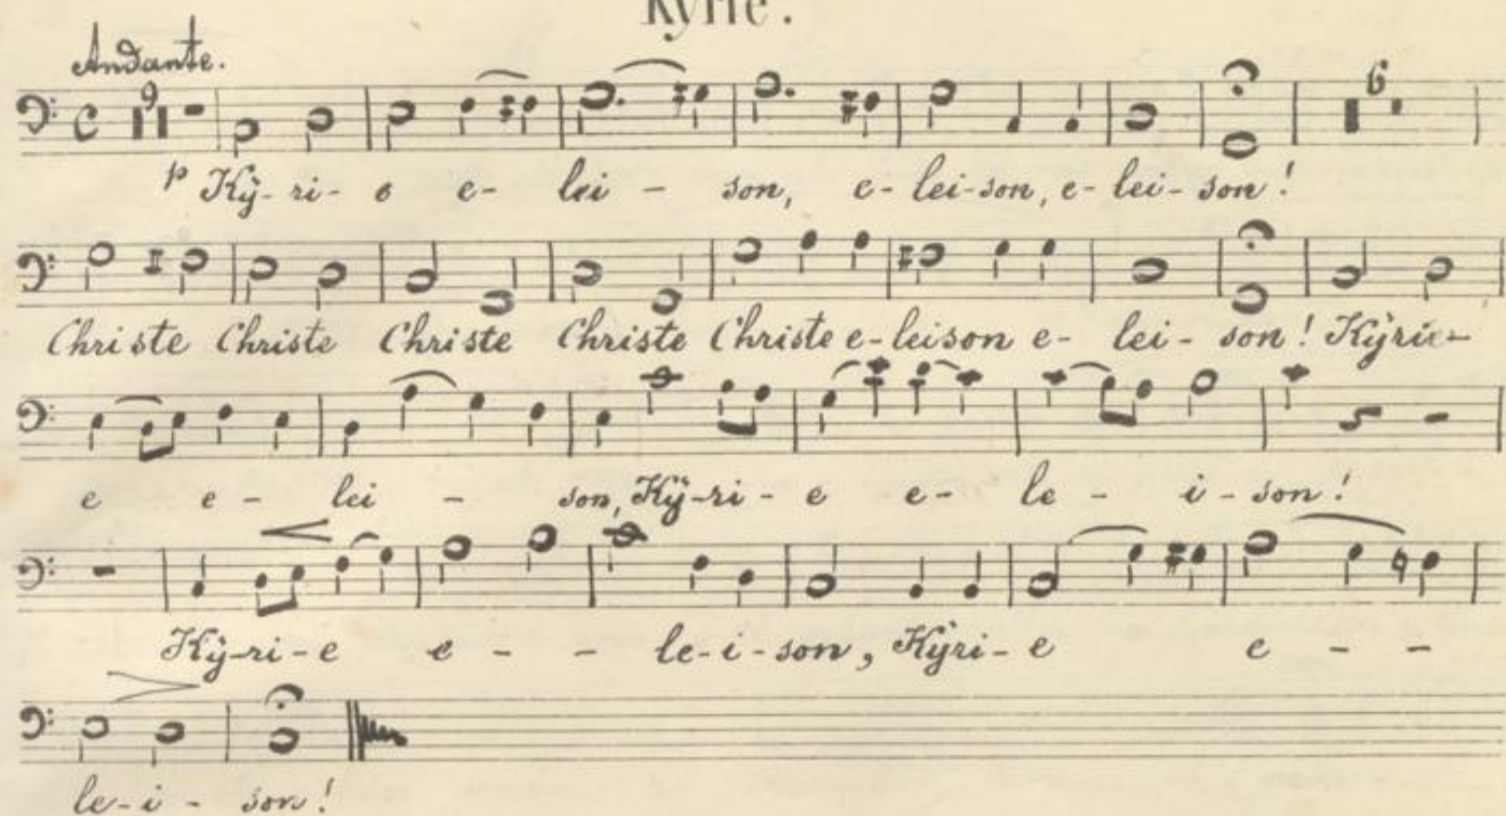 Kyrie.
Andante.
9
6
p Kÿ-ri-e e-lei-son, e-lei-son, e-lei-son!
Christe Christe Christe Christe Christe e-leison e-lei-son! Kÿrie-
e e-lei-son, Kÿ-ri-e e-le-i-son!
Kÿ-ri-e e--le-i-son, Kÿri-e e--
le-i-son!